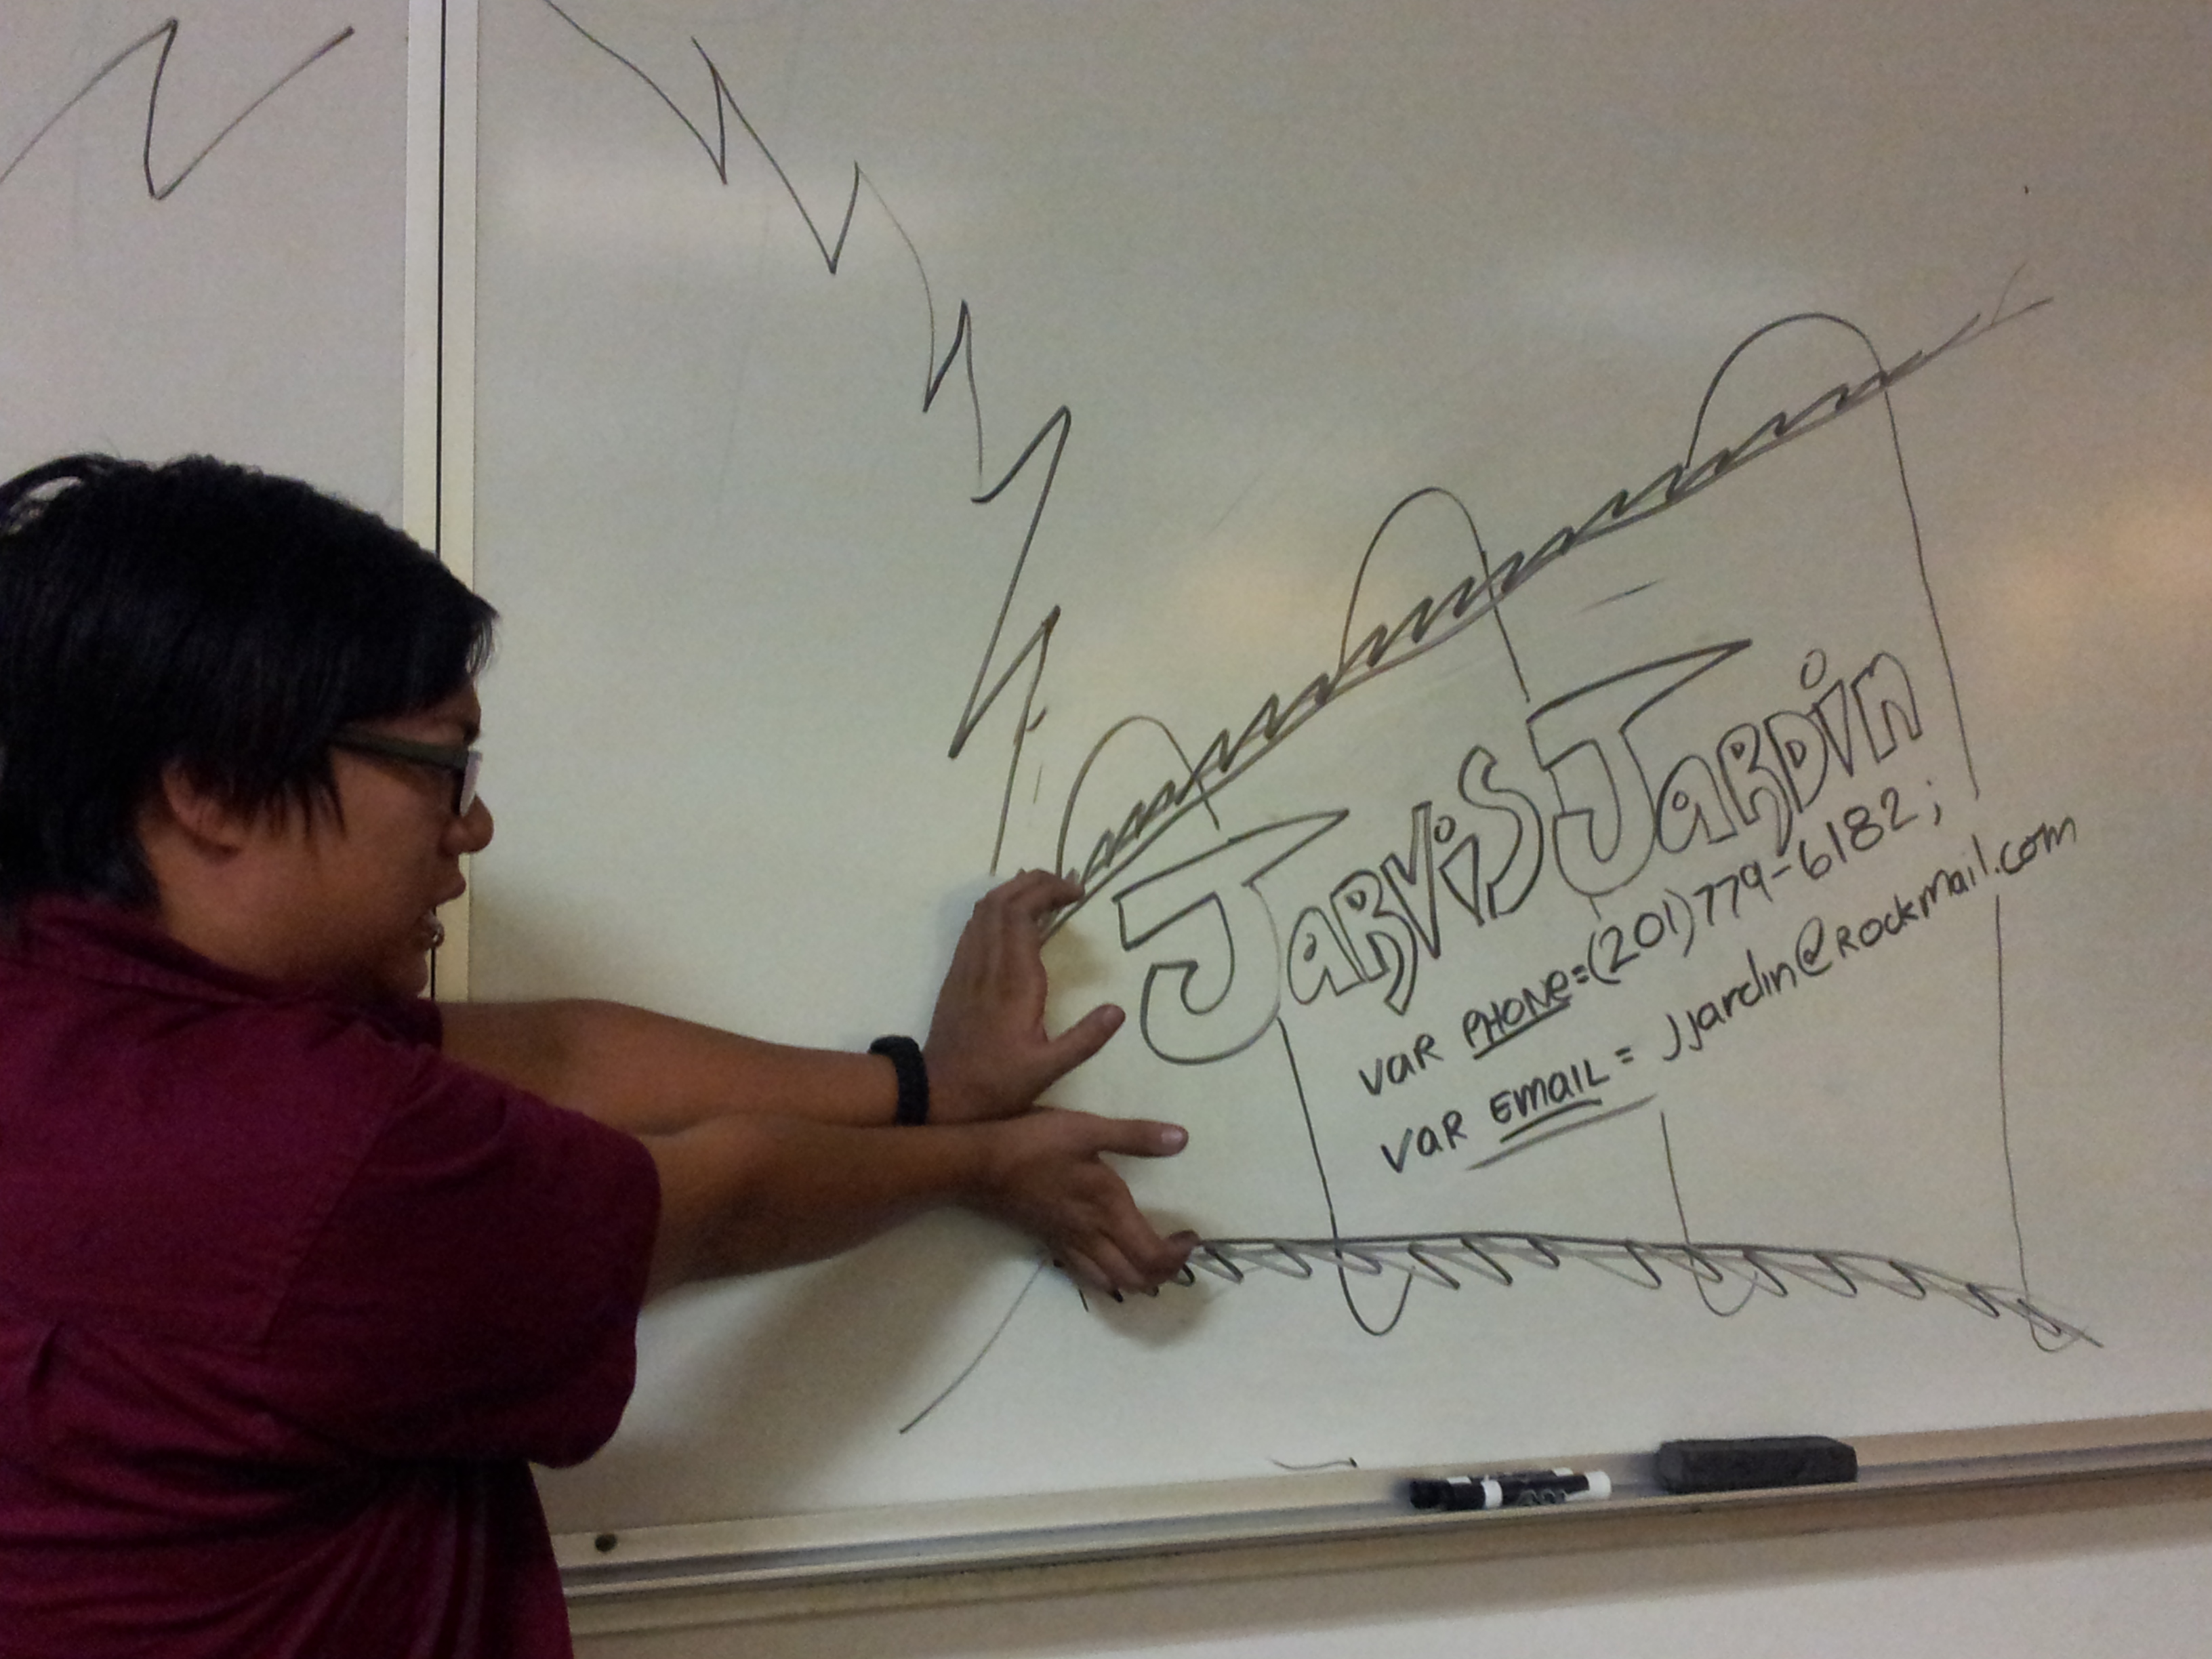 JARViS JARDiN
VAR PHONE=(201)779-6182;
VAR EMAIL = Jjardin@Rockmail.com